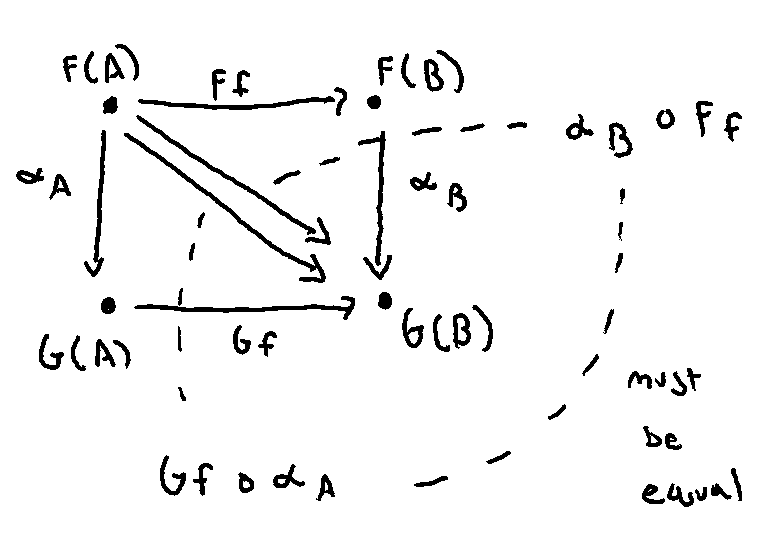 F(A)
Ff
F(B)
α_B ∘ Ff
α_A
α_B
G(A)
Gf
G(B)
must
be
equal
Gf ∘ α_A